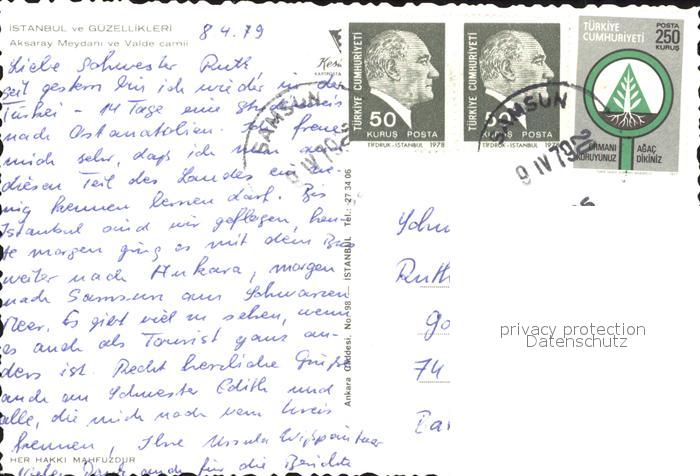 ISTANBUL ve GÜZELLİKLERİ 8 4. 79
Aksaray Meydanı ve Valde camii
Liebe Schwester Ruth
seit gestern bin ich wieder in der
Türkei – 14 Tage eine
nach Ostanatolien. Ich freue
mich sehr, daß ich nun auch
diesen Teil des Landes ein we-
nig kennen lernen darf. Bis
Istanbul sind wir geflogen, heu-
te morgen ging es mit dem Bus
weiter nach Ankara, morgen
nach Samsun am Schwarzen
Meer. Es gibt viel zu sehen, wenn
es auch als Tourist ganz an-
ders ist. Recht herzliche Grüße
auch an Schwester Edith und
alle, die mich noch vom Kreis
kennen, Ihre Ursula
HER HAKKI MAHFUZDUR
Vielen Dank auch für die Berichte
Ankara Caddesi. No. 98 — İSTANBUL Tel.: 27 34 06
TÜRKİYE CUMHURİYETİ
50
KURUŞ POSTA
TİFDRUK-İSTANBUL 1978
TÜRKİYE CUMHURİYETİ
50
KURUŞ POSTA
TİFDRUK-İSTANBUL 1978
TÜRKİYE
CUMHURİYETİ
POSTA
250
KURUŞ
ORMANI
KORUYUNUZ
AĞAÇ
DİKİNİZ
SAMSUN
9 IV 79
SAMSUN
9 IV 79 20
Schw
Ruth
Go
74
privacy protection
Datenschutz